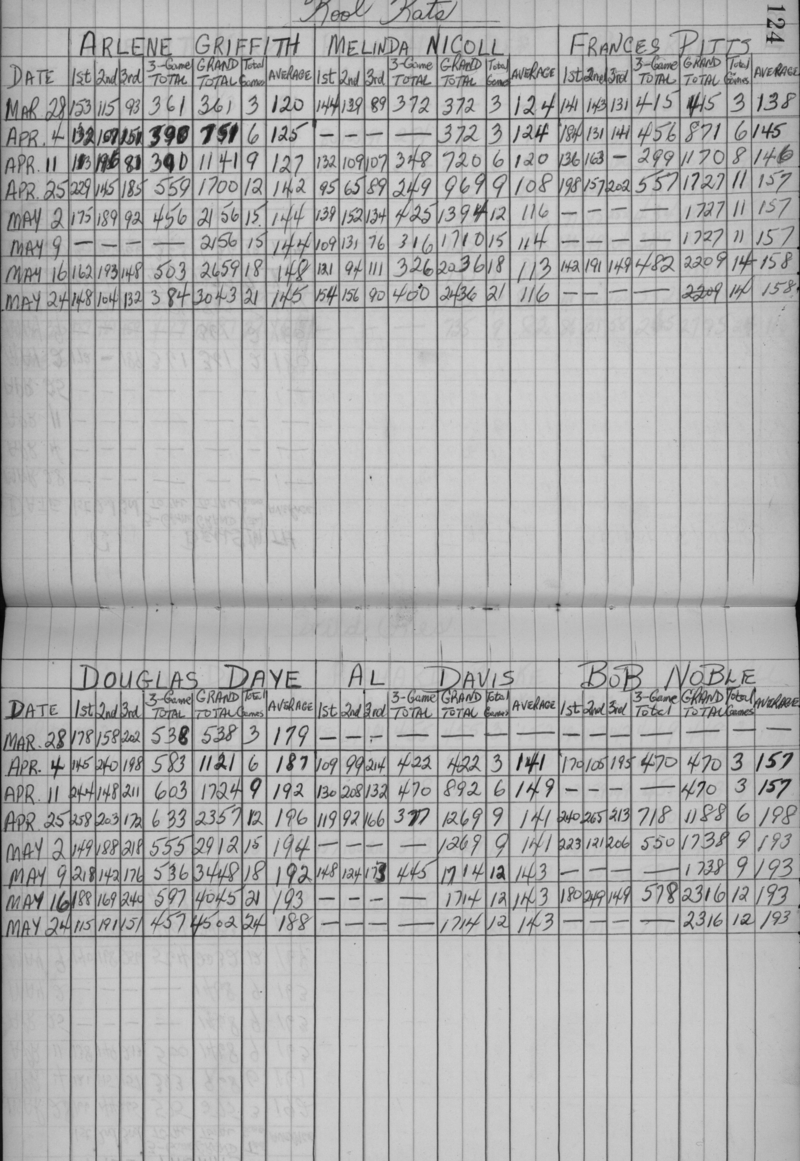 Kool Kats
124
ARLENE GRIFFITH MELINDA NICOLL FRANCES PITTS
DATE 1st 2nd 3rd 3-Game TOTAL GRAND TOTAL Total Games AVERAGE 1st 2nd 3rd 3-Game TOTAL GRAND TOTAL Total Games AVERAGE 1st 2nd 3rd 3-Game TOTAL GRAND TOTAL Total Games AVERAGE
MAR 28 153 115 93 361 361 3 120 144 139 89 372 372 3 124 141 143 131 415 415 3 138
APR. 4 132 107 151 390 751 6 125 - - - - 372 3 124 184 131 141 456 871 6 145
APR. 11 113 196 81 390 1141 9 127 132 109 107 348 720 6 120 136 163 - 299 1170 8 146
APR. 25 229 145 185 559 1700 12 142 95 65 89 249 969 9 108 198 157 202 557 1727 11 157
MAY 2 175 189 92 456 2156 15 144 139 152 134 425 1394 12 116 - - - - 1727 11 157
MAY 9 - - - - 2156 15 144 109 131 76 316 1710 15 114 - - - - 1727 11 157
MAY 16 162 193 148 503 2659 18 148 121 94 111 326 2036 18 113 142 191 149 482 2209 14 158
MAY 24 148 104 132 384 3043 21 145 154 156 90 400 2436 21 116 - - - - 2209 14 158
DOUGLAS DAYE AL DAVIS BOB NOBLE
DATE 1st 2nd 3rd 3-Game TOTAL GRAND TOTAL Total Games AVERAGE 1st 2nd 3rd 3-Game TOTAL GRAND TOTAL Total Games AVERAGE 1st 2nd 3rd 3-Game Total GRAND TOTAL Total Games AVERAGE
MAR. 28 178 158 202 538 538 3 179 - - - - - - - - - - - - - -
APR. 4 145 240 198 583 1121 6 187 109 99 214 422 422 3 141 170 105 195 470 470 3 157
APR. 11 244 148 211 603 1724 9 192 130 208 132 470 892 6 149 - - - - 470 3 157
APR. 25 258 203 172 633 2357 12 196 119 92 166 377 1269 9 141 240 265 213 718 1188 6 198
MAY 2 149 188 218 555 2912 15 194 - - - - 1269 9 141 223 121 206 550 1738 9 193
MAY 9 218 142 176 536 3448 18 192 148 124 173 445 1714 12 143 - - - - 1738 9 193
MAY 16 188 169 240 597 4045 21 193 - - - - 1714 12 143 180 249 149 578 2316 12 193
MAY 24 115 191 151 457 4502 24 188 - - - - 1714 12 143 - - - - 2316 12 193